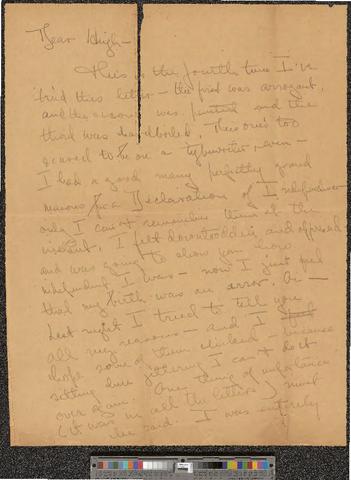 Dear Hugh—
This is the fourth time I've
tried this letter — the first was arrogant,
and the second was and the
third was hardboiled. This one's too
scared to be on a typewriter even —
I had a good many perfectly grand
reasons for a Declaration of Independence
only I can't remember them at the
instant. I felt downtrodden and oppressed
and was going to show you how
independent I was — now I just feel
that my birth was an error. Oh —
Last night I tried to tell you
all my reasons — and I
hope some of them clicked — because
sitting here jittering I can't do it
over again. One thing of importance
(it was in all the letters) must
be said. I was entirely